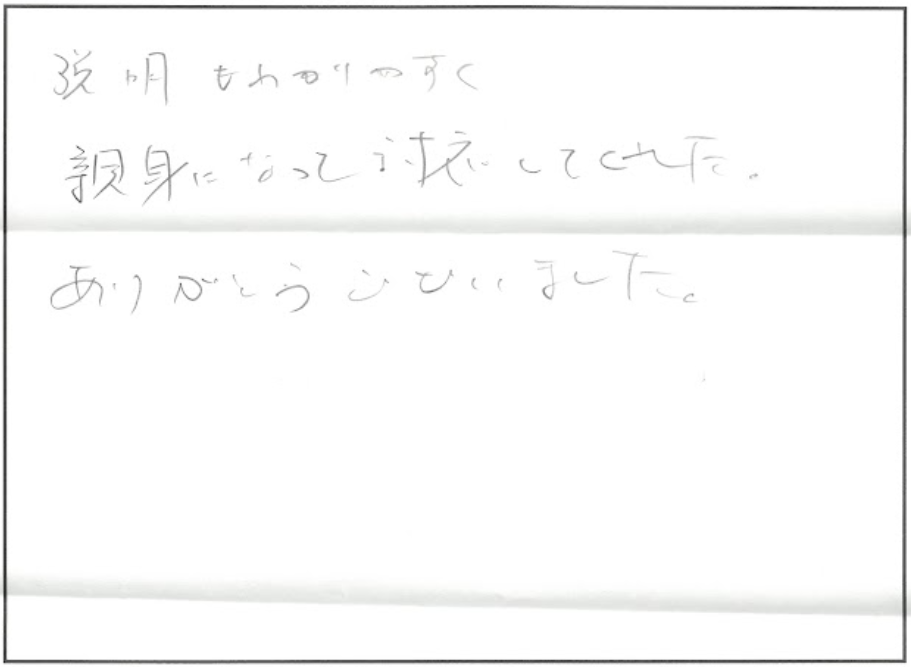 説明もわかりやすく
親身になって対応してくれた。
ありがとうございました。